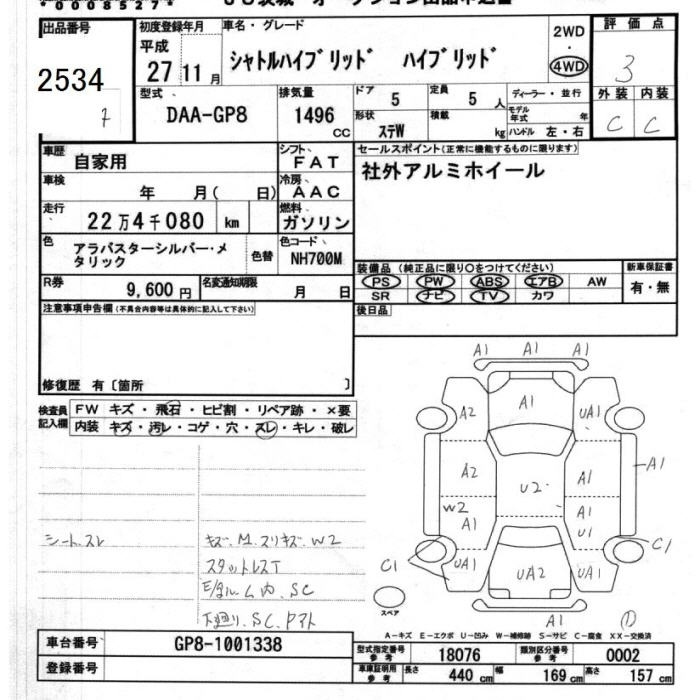 *0008527*
出品番号
2534
7
初度登録年月
平成
27年11月
車名・グレード
シャトルハイブリッド ハイブリッド
2WD
・
4WD
評価点
3
型式
DAA-GP8
排気量
1496
CC
ドア
5
定員
5人
形状
ステW
積載
kg
ディーラー・並行
モデル年式 年
ハンドル 左・右
外装 内装
C C
車歴
自家用
シフト
FAT
セールスポイント(正常に機能するものに限ります)
社外アルミホイール
車検
年 月( 日)
冷房
AAC
走行
22万4千080 km
燃料
ガソリン
色
アラバスターシルバー・メタリック
色替
色コード
NH700M
R券
9,600円
名変通知期限
月 日
装備品(純正品に限り○をつけてください)
PS PW ABS エアB AW
SR ナビ TV カワ
新車保証書
有・無
後日品
注意事項申告欄(不具合内容等は具体的に記入して下さい)
修復歴 有〔箇所 〕
検査員記入欄
FW キズ・飛石・ヒビ割・リペア跡・×要
内装 キズ・汚レ・コゲ・穴・スレ・キレ・破レ
シートスレ
キズ.M.スリキズ.W2
スタットレスT
下廻り.SC.
A1
A1 A1
A2 A1 UA1
A2 A1 A1
U2
W2
A1 A1
U1
C1 C1
UA1 UA2 UA1
A1
スペア
(1)
A-キズ E-エクボ U-凹み W-補修跡 S-サビ C-腐食 XX-交換済
車台番号
GP8-1001338
登録番号
型式指定番号
参考
18076
類別区分番号
参考
0002
車庫証明用
参考
長さ
440 cm
幅
169 cm
高さ
157 cm